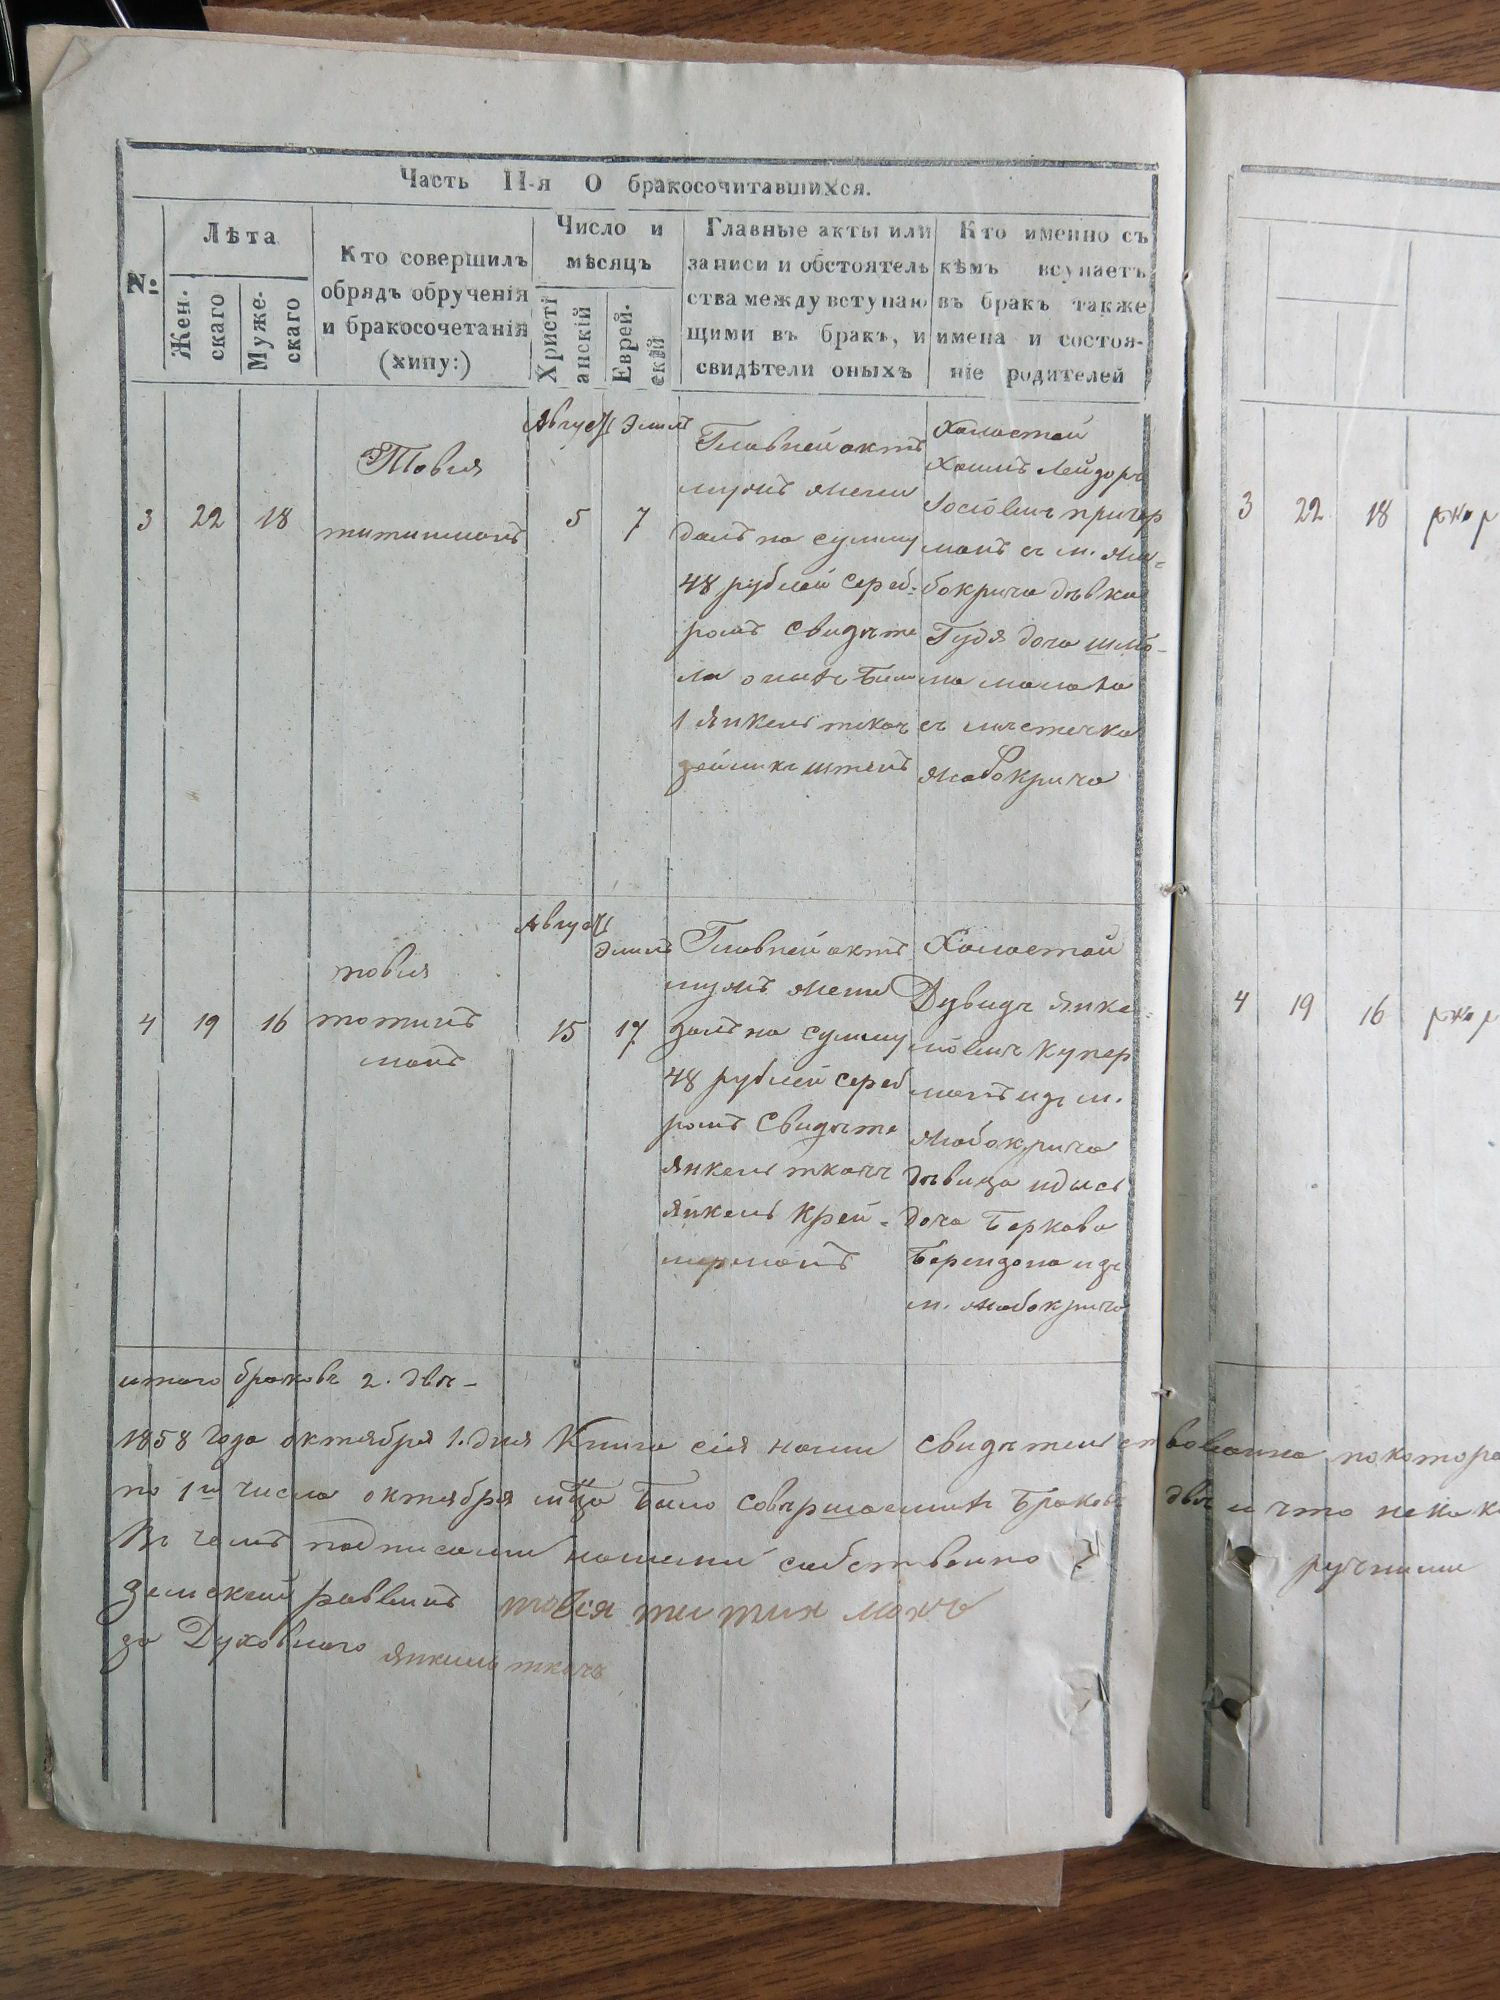 Часть II-я О бракосочитавшихся.
№
Лѣта
Жен-
скаго
Муже-
скаго
Кто совершилъ
обрядъ обрученія
и бракосочетанія
(хипу:)
Число и
мѣсяцъ
Христі
анскій
Еврей-
скій
Главные акты или
записи и обстоятель
ства между вступаю
щими въ бракъ, и
свидѣтели оныхъ
Кто именно съ
кѣмъ вступаетъ
въ бракъ также
имена и состоя-
ніе родителей
3
22
18
Товія
титинманъ
Август
5
Элилъ
7
Главней актъ
мужъ жени
далъ на сумму
48 рублей сереб-
ромъ свидѣте
ли онихъ били
1 Янкель ткач
Холостой
Хаимъ Лейзоръ
Іосіовичъ
манъ съ м. Жа-
бокрича дѣвка
дочь
съ мѣстечка
Жабокрича
4
19
16
товія
манъ
Август
15
Элилъ
17
Главней актъ
мужъ жени
далъ на сумму
48 рублей сереб
ромъ свидѣте
Янкель ткачъ
Янкель Крей-
мерманъ
Холостой
Дувидъ Янке-
ловичъ Купер
манъ изъ м.
Жабокрича
дѣвица
доча Беркова
изъ
м. Жабокрича
итого браковъ 2. двѣ-
1858 года октября 1. дня Книга сія нами свидѣтельствована по котора
по 1го числа октября мца было совершаемихъ браковъ двѣ и что
Въ чемъ подписали нашими собственно ручними
раввинъ товія титин манъ
за Духовнаго Янкель ткачъ
3
22
18
4
19
16